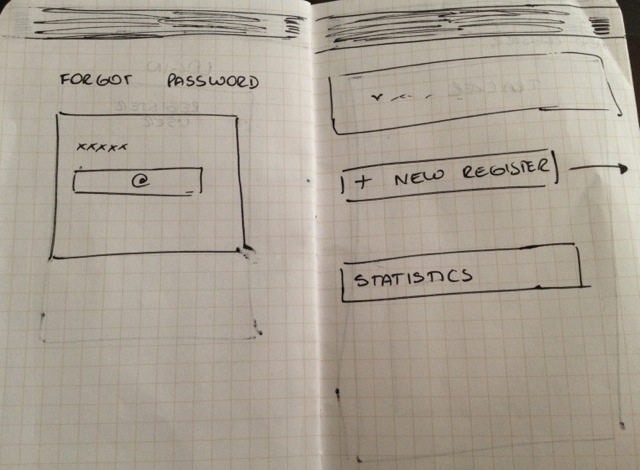 FORGOT PASSWORD
xxxxx
@
+ NEW REGISTER
STATISTICS